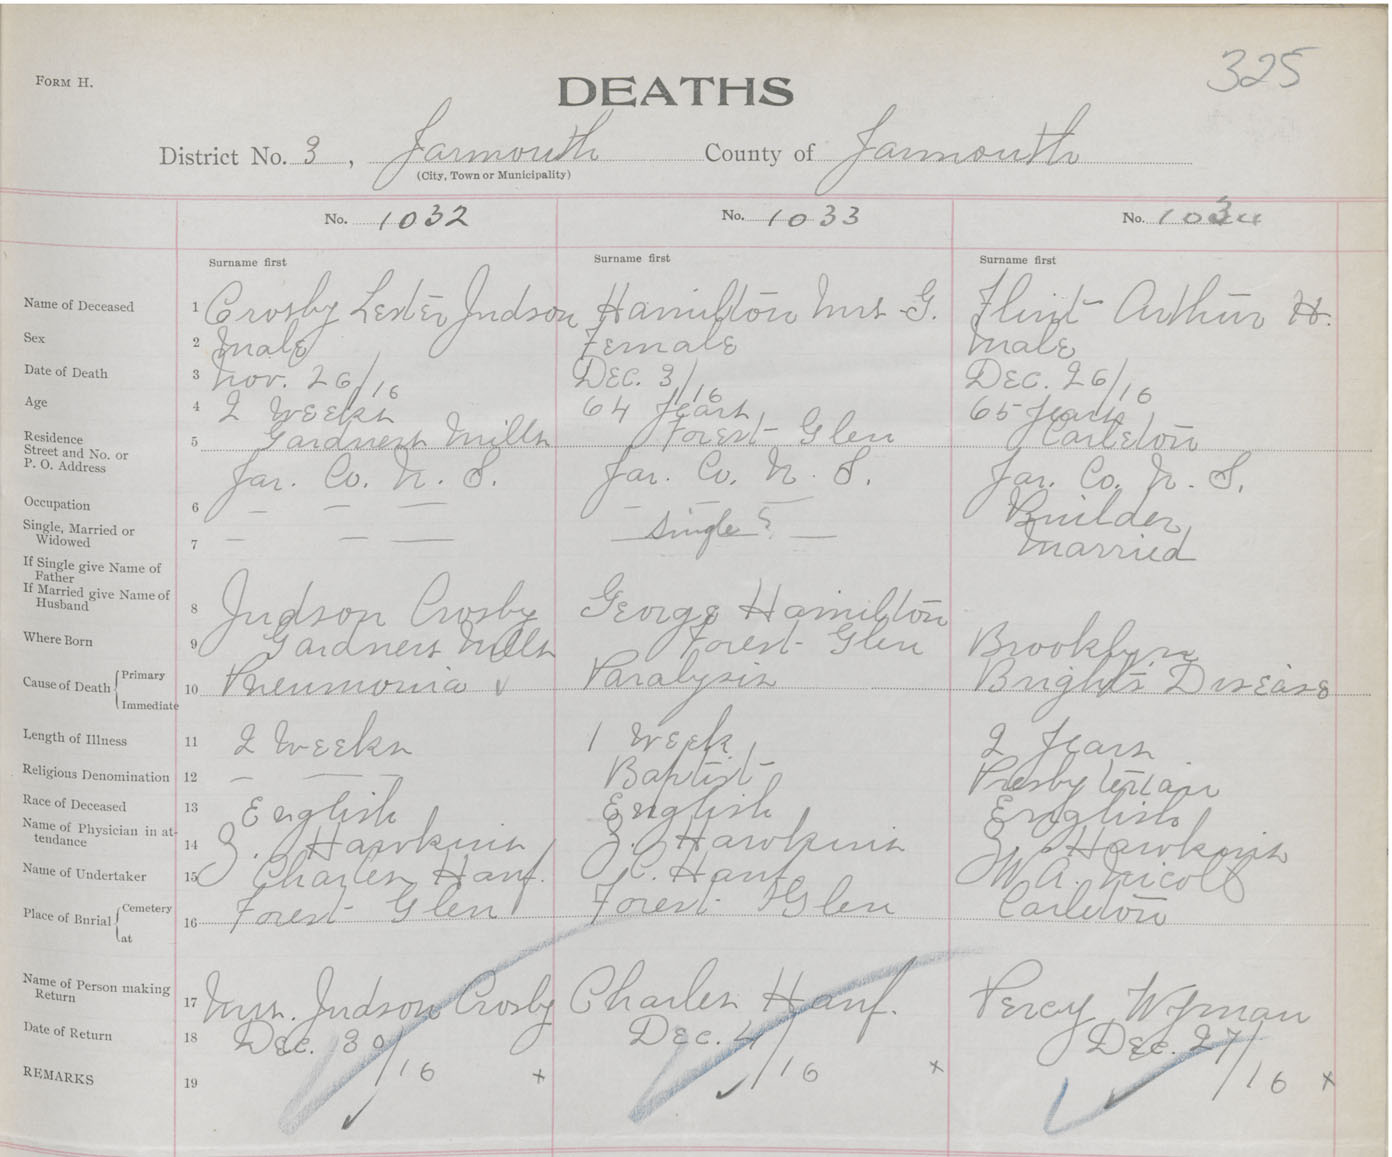 325
FORM H.
DEATHS
District No. 3, Yarmouth County of Yarmouth
(City, Town or Municipality)
No. 1032 No. 1033 No. 1034
Surname first Surname first Surname first
Name of Deceased 1 Crosby Lester Judson Hamilton Mrs G. Flint Arthur H.
Sex 2 Male Female Male
Date of Death 3 Nov. 26/16 Dec. 3/16 Dec. 26/16
Age 4 2 Weeks 64 Years 65 Years
Residence Street and No. or P. O. Address 5 Gardners Mills Forest Glen Carleton
Yar. Co. N. S. Yar. Co. N. S. Yar. Co. N. S.
Occupation 6 — — — — — — Builder
Single, Married or Widowed 7 — — — Single ? — Married
If Single give Name of Father
If Married give Name of Husband 8 Judson Crosby George Hamilton
Where Born 9 Gardners Mills Forest Glen Brooklyn
Cause of Death { Primary Immediate 10 Pneumonia Paralysis Brights Disease
Length of Illness 11 2 Weeks 1 Week 2 Years
Religious Denomination 12 — — Baptist Presbyterian
Race of Deceased 13 English English English
Name of Physician in attendance 14 Z. Hawkins Z. Hawkins Z. Hawkins
Name of Undertaker 15 Charles Hanf. C. Hanf W. A. Nicoll
Place of Burial { Cemetery at 16 Forest Glen Forest Glen Carleton
Name of Person making Return 17 Mrs. Judson Crosby Charles Hanf. Percy Wyman
Date of Return 18 Dec. 30/16 Dec. 4/16 Dec. 27/16
REMARKS 19 x x x